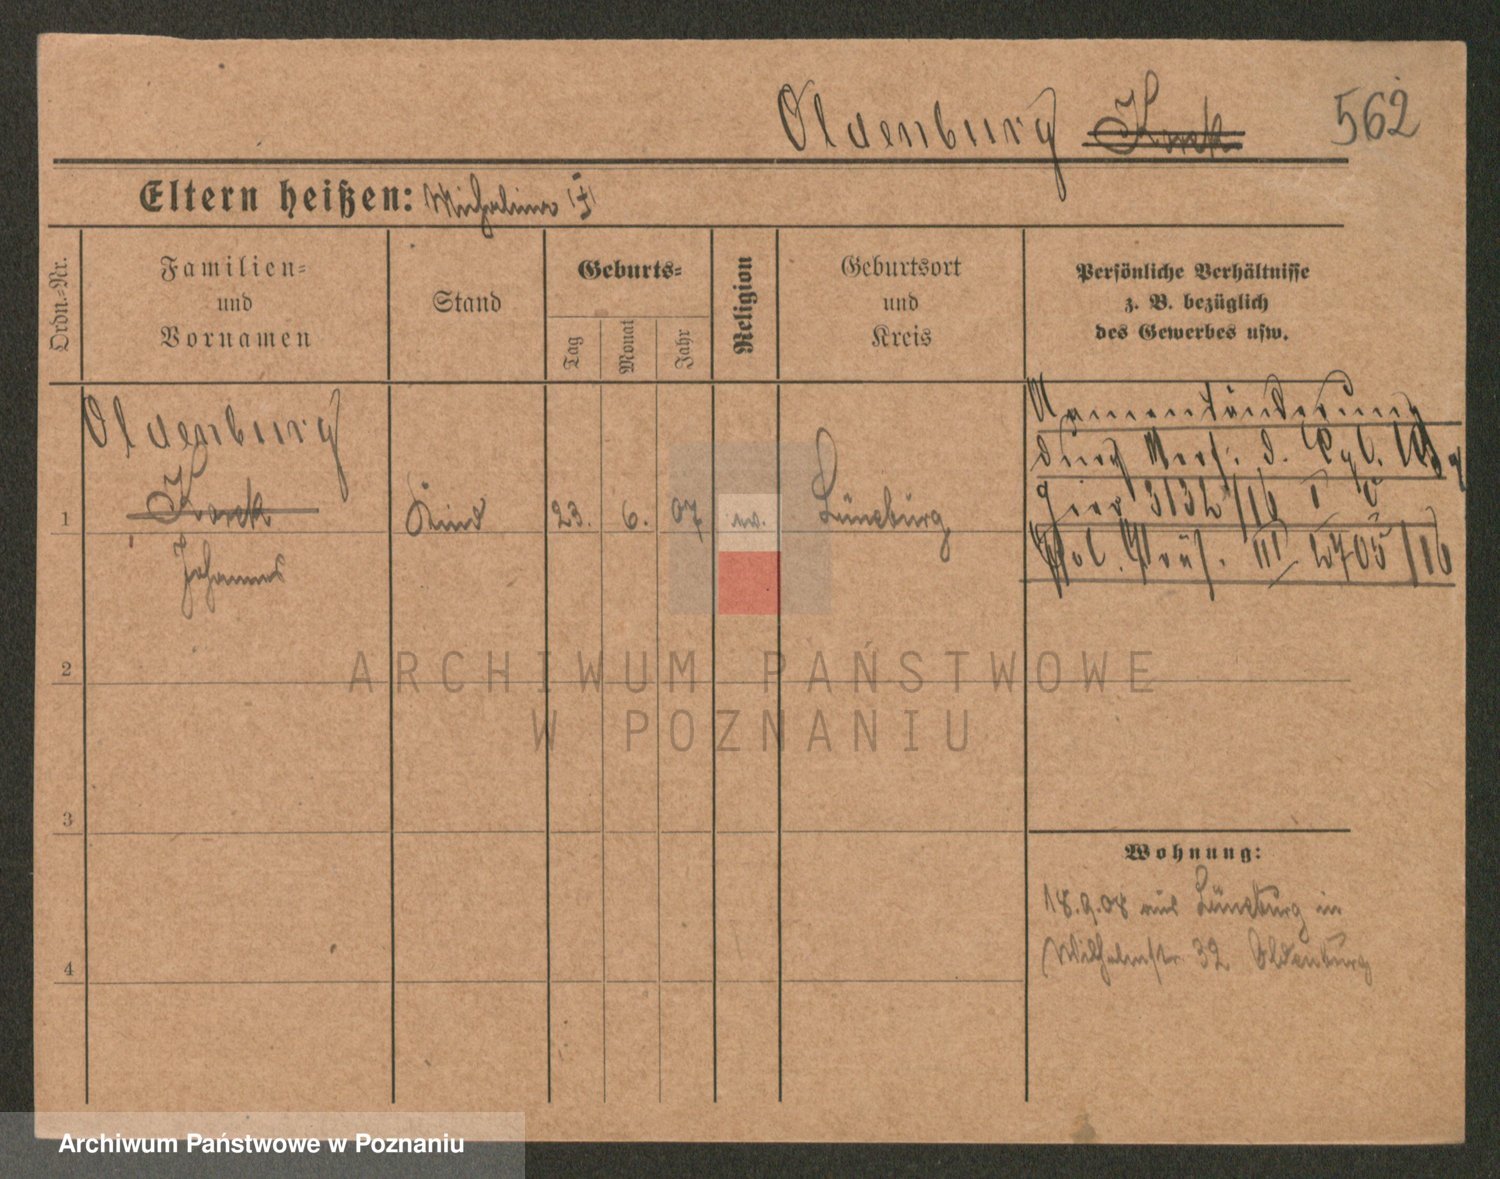 Oldenburg Korek 562
Eltern heißen: Wilhelmine (†)
Ordn.-Nr.
Familien-
und
Vornamen
Stand
Geburts-
Tag
Monat
Jahr
Religion
Geburtsort
und
Kreis
Persönliche Verhältnisse
z. B. bezüglich
des Gewerbes usw.
Oldenburg
Korek
1
Johannes
Kind
23.
6.
07
ev.
Lüneburg
Namensänderung
durch Verf. d. Kgl.
hier 3132/16 I
Pol. Präs. III 2705/16
2
3
4
Wohnung:
18.9.08 aus Lüneburg in
Wilhelmstr. 32 Oldenburg
ARCHIWUM PAŃSTWOWE
W POZNANIU
Archiwum Państwowe w Poznaniu